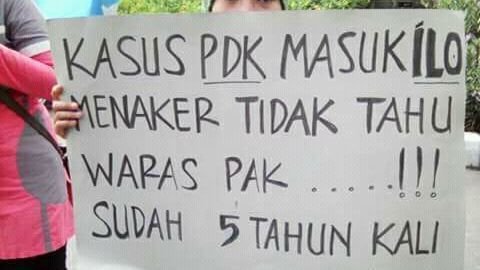 KASUS PDK MASUK ILO
MENAKER TIDAK TAHU
WARAS PAK .....!!!
SUDAH 5 TAHUN KALI